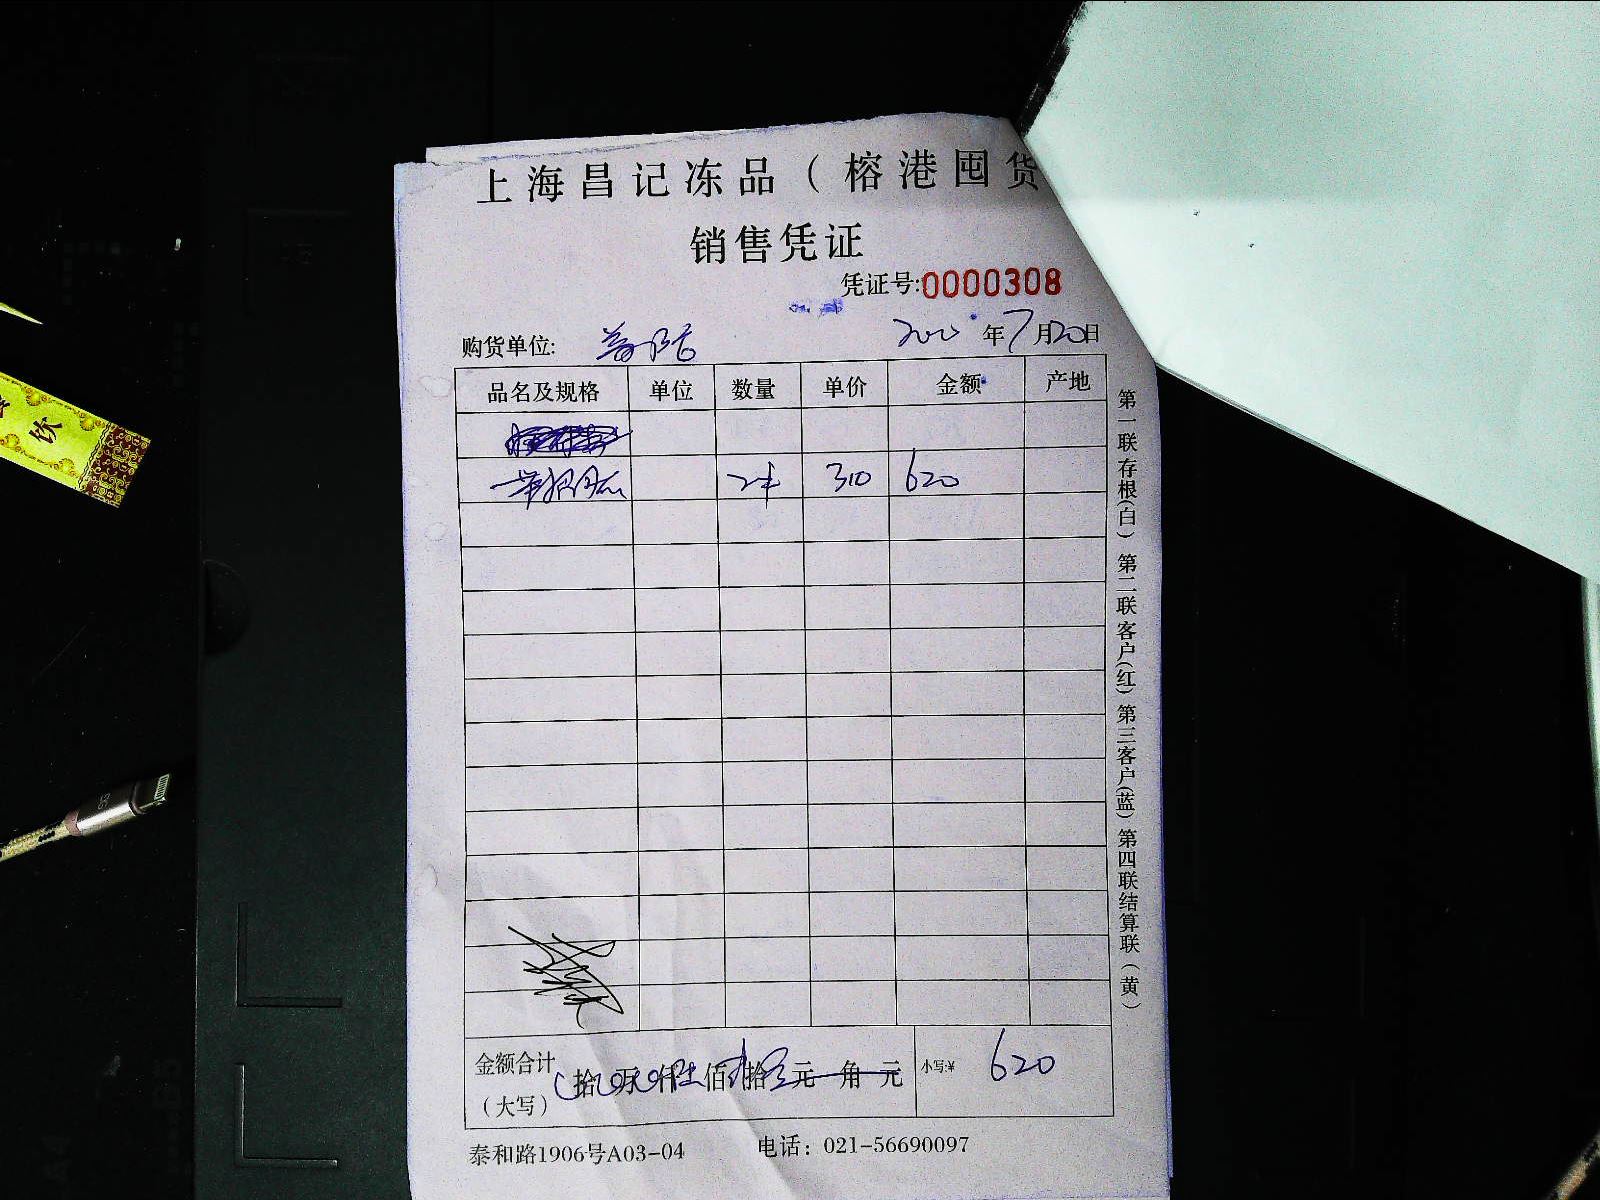 上海昌记冻品（榕港囤货
销售凭证
凭证号:0000308
购货单位: 年7月20日
品名及规格 单位 数量 单价 金额 产地
2件 310 620
金额合计（大写） 拾 万 仟 佰 拾 元 角 元 小写:¥ 620
泰和路1906号A03-04 电话：021-56690097
第一联存根(白) 第二联客户(红) 第三客户(蓝) 第四联结算联（黄）
饮